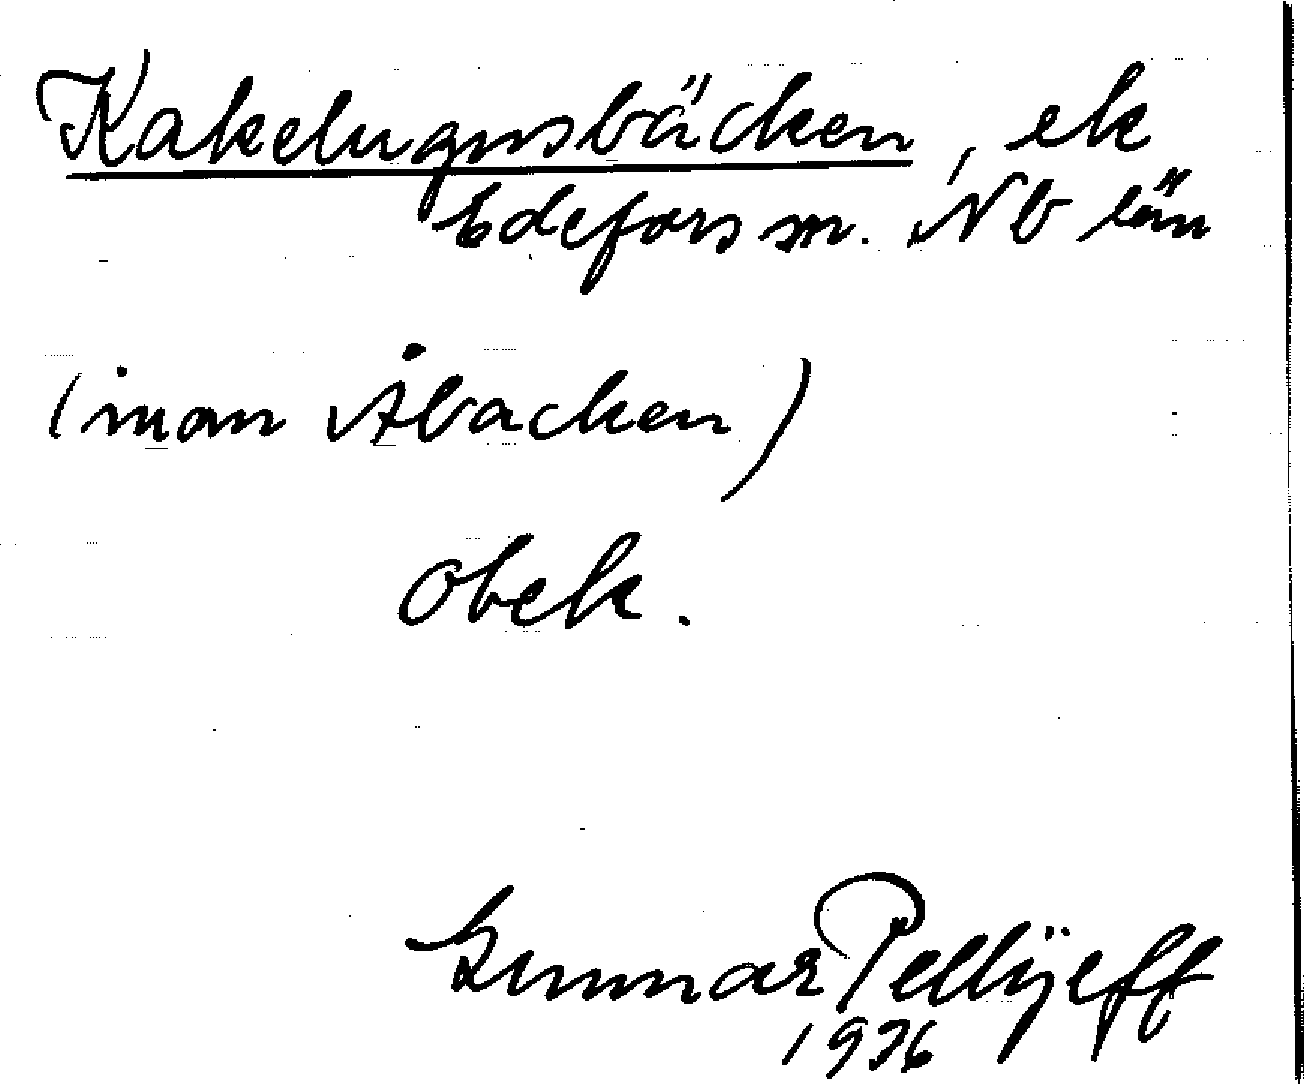 Kakelugnsbäcken, ek
Edefors sn. Nb län
(inom Åbacken)
Obek.
Gunnar Pellijeff
1936